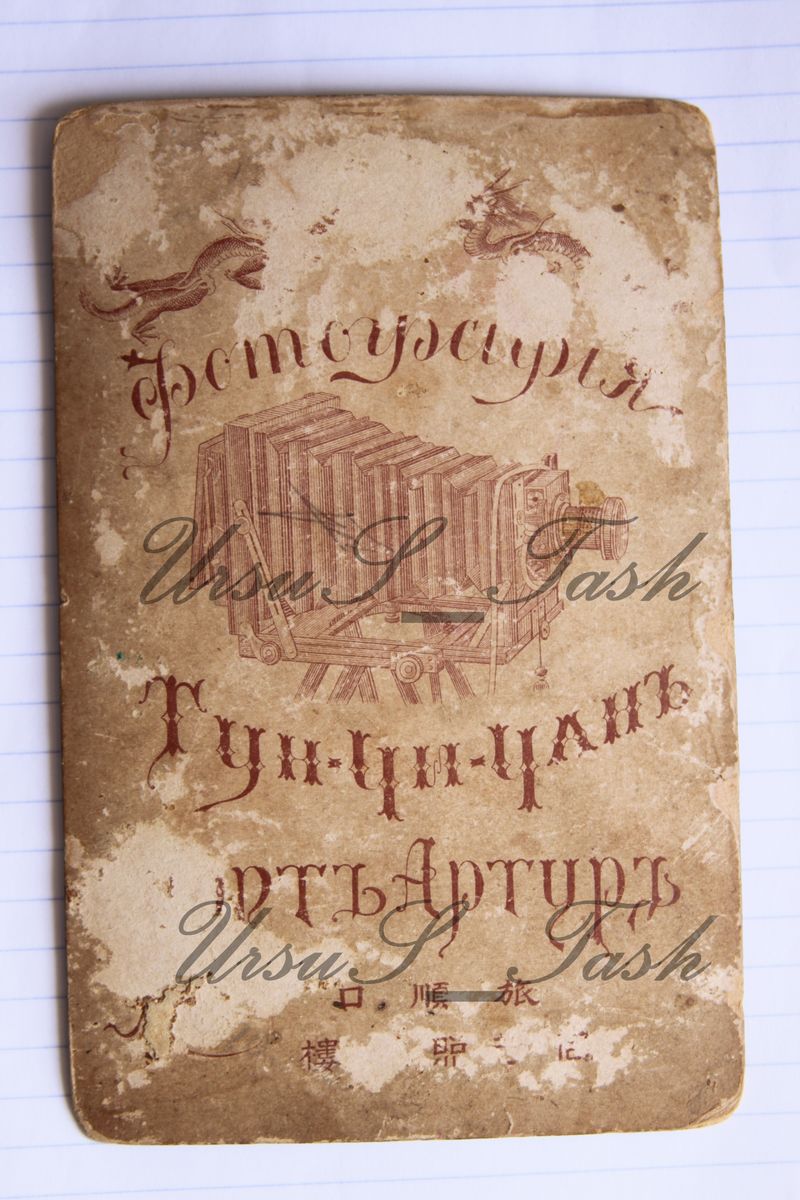 Фотографія
UrsuS_Tash
Тун-Чи-Чанъ
ртъ Артуръ
UrsuS_Tash
口 順 旅
樓 照